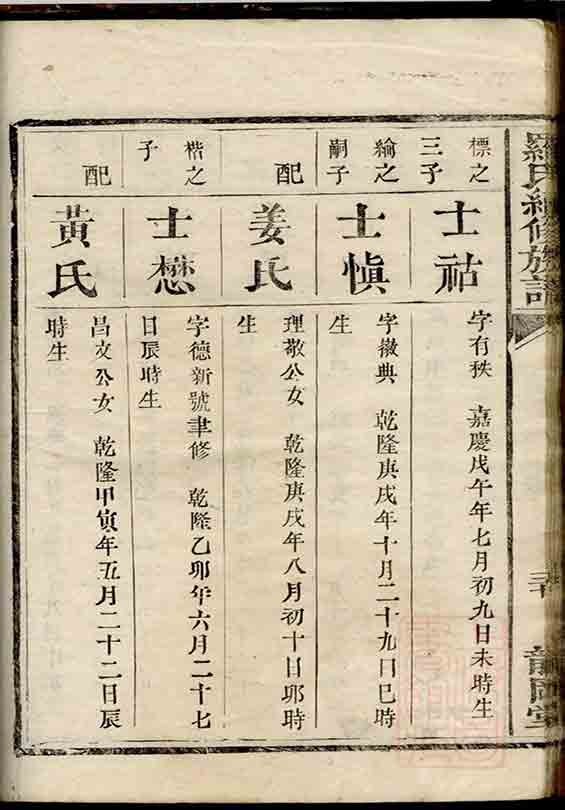 羅氏續修族譜
標之
三子
士祜
字有秩 嘉慶戊午年七月初九日未時生
綸之
嗣子
士慎
字徽典 乾隆庚戌年十月二十九日巳時
生
配
姜氏
理敬公女 乾隆庚戌年八月初十日卯時
生
楷之
子
士懋
字德新號聿修 乾隆乙卯年六月二十七
日辰時生
配
黃氏
昌文公女 乾隆甲寅年五月二十二日辰
時生